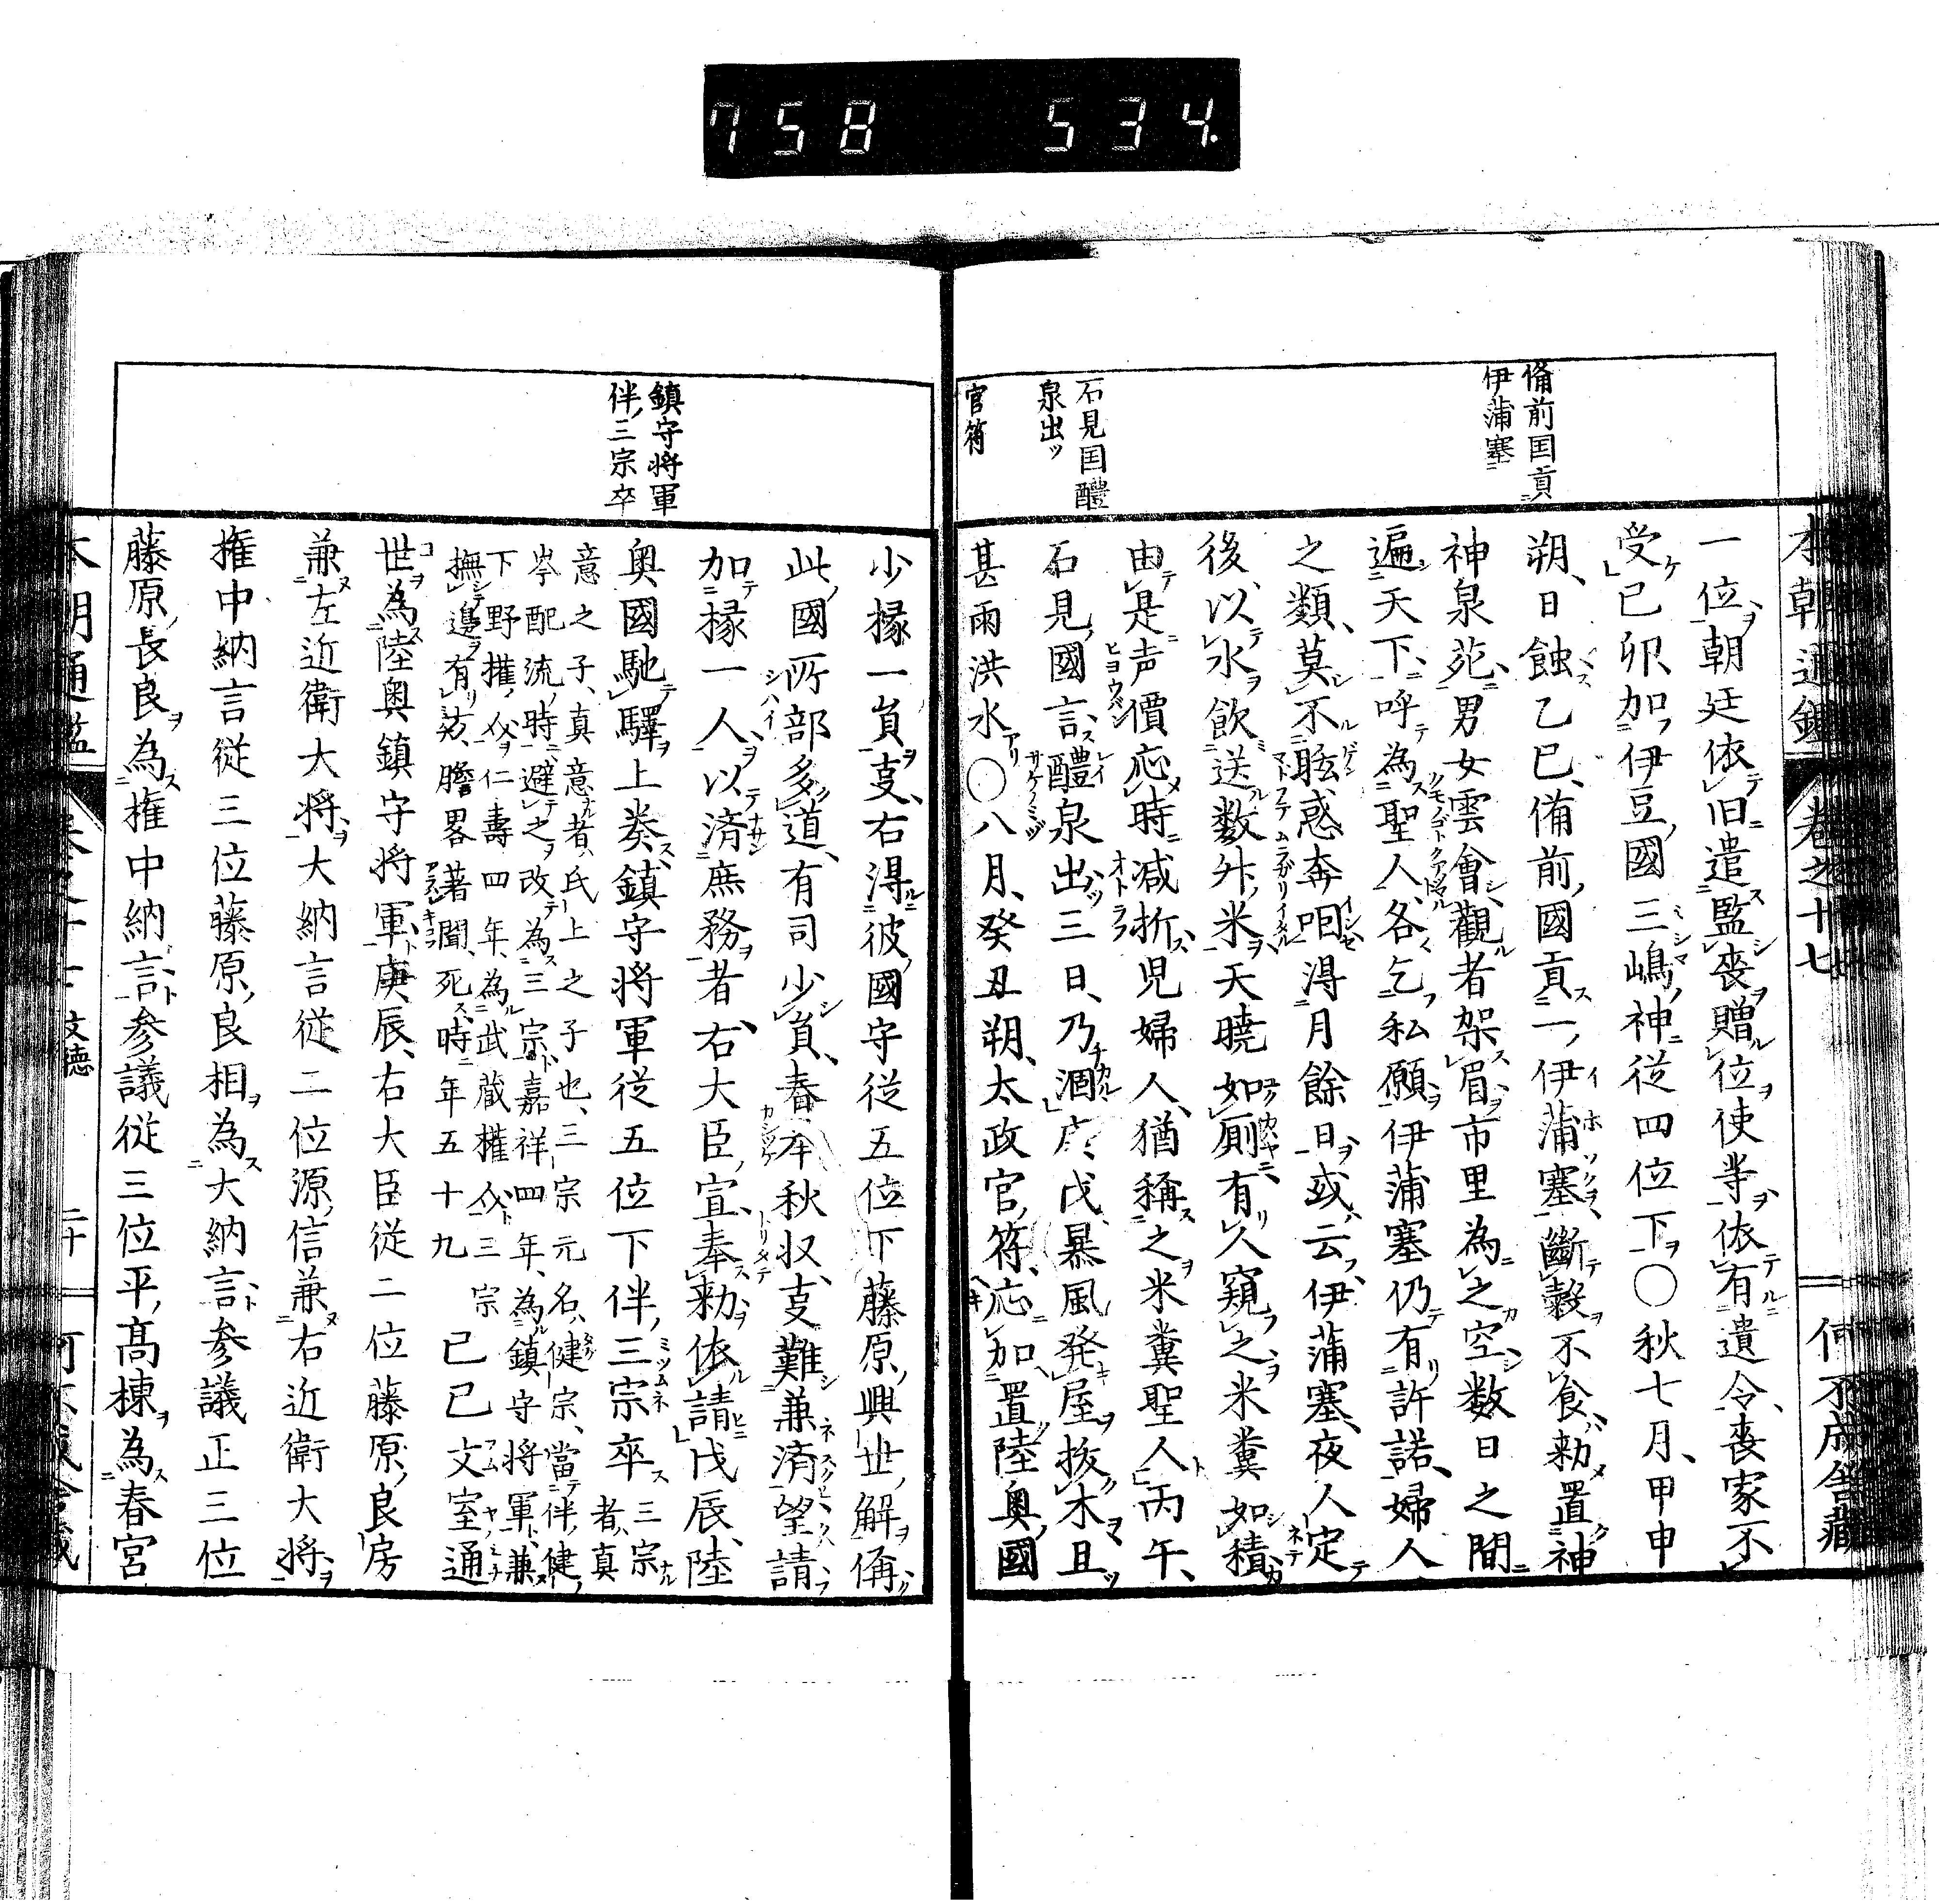 758 534.
本朝通鑑 巻之十七 何不成舎蔵
備前国貢
伊蒲塞
石見国醴
泉出
官符
一位朝廷依旧遣監喪贈位使等依有遺令喪家不
受己卯加伊豆國三嶋神従四位下〇秋七月甲申
朔日蝕乙巳俻前國貢一伊蒲塞斷穀不食勅置神
神泉苑男女雲會觀者架眉市里為之空数日之間
遍天下呼為聖人各乞私願伊蒲塞仍有許諾婦人
之類莫不眩惑奔咽淂月餘日或云伊蒲塞夜人定
後以水飲送数舛米天曉如厠有人窺之米糞如積
由是声價応時减折児婦人猶稱之米糞聖人丙午
石見國言醴泉出三日乃涸戊暴風発屋抜木且
甚雨洪水〇八月癸丑朔太政官符応加置陸奥國
鎮守将軍
伴三宗卒
少掾一貟㕝右淂彼國守従五位下藤原興世解偁
此國所部多道有司少貟春秋収㕝難兼済望請
加掾一人以済庶務者右大臣宣奉勅依請戊辰陸
奥國馳驛上奏鎮守将軍従五位下伴三宗卒三宗
者真
意之子真意者氏上之子也三宗元名健宗當伴健
岑配流時避之改為三宗嘉祥四年為鎮守将軍兼
下野權介仁壽四年為武蔵權介三宗
撫邊有方膽畧著聞死時年五十九
己巳文室通
世為陸奥鎮守将軍庚辰右大臣従二位藤原良房
兼左近衛大将大納言従二位源信兼右近衛大将
権中納言従三位藤原良相為大納言参議正三位
藤原長良為権中納言参議従三位平髙棟為春宮
本朝通鑑 文徳 二十